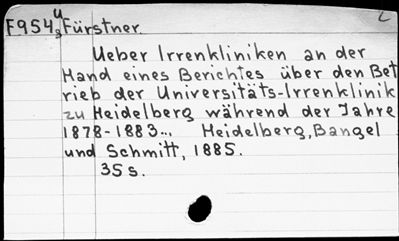 F954u Fürstner.
L
Ueber Irrenkliniken an der
Hand eines Berichtes über den Bet
rieb der Universitäts-Irrenklinik
zu Heidelberg während der Jahre
1878-1883... Heidelberg, Bangel
und Schmitt, 1885.
35 s.